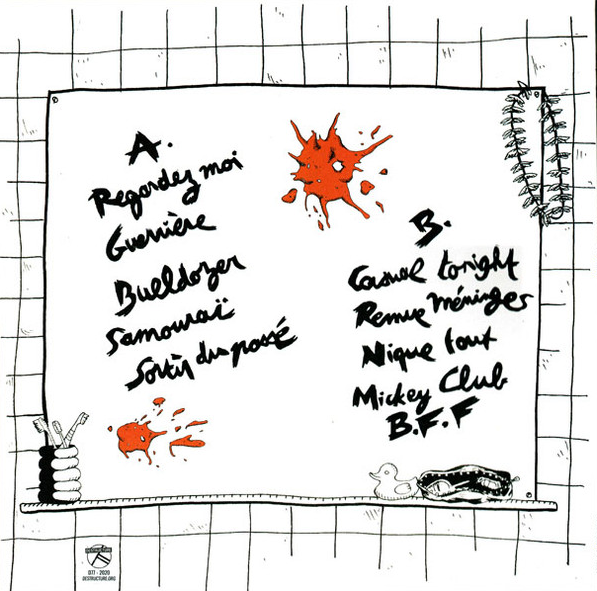 A.
Regardez moi
Guerrière
Bulldozer
Samouraï
Sortir du passé
B.
Casual tonight
Remue méninges
Nique tout
Mickey Club
B.F.F
DESTRUCTURE
D77 - 2020
DESTRUCTURE.ORG